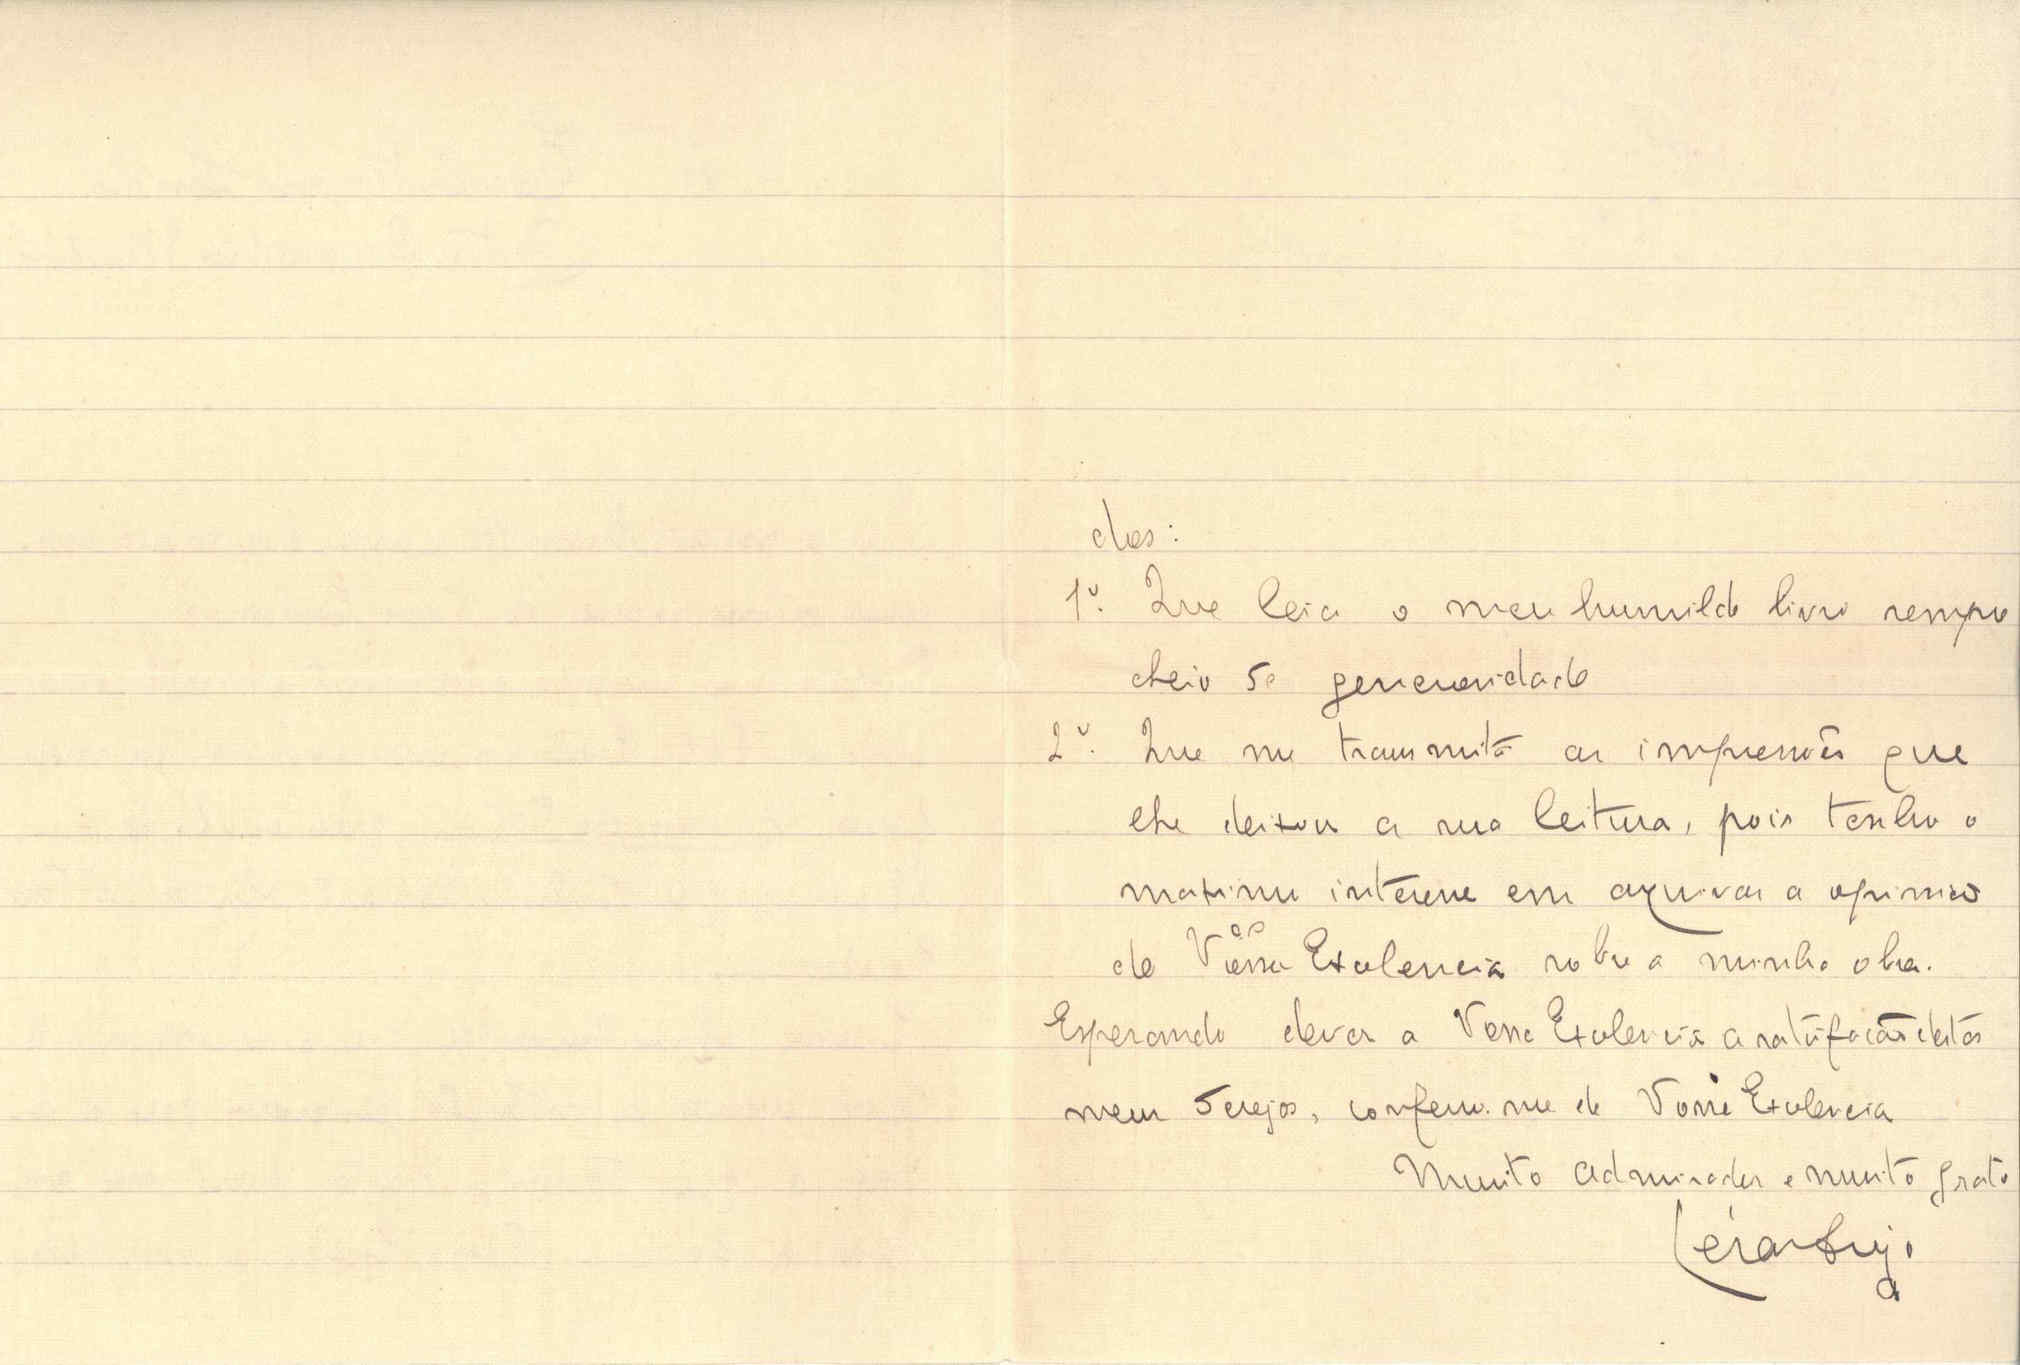 dos:
1º. Que leia o meu humilde livro sempre
cheio de generosidade
2º. Que me transmita as impressões que
lhe deixou a sua leitura, pois tenho o
maximo interesse em arquivar a opinião
de Vossa Excelencia sobre a minha obra.
Esperando dever a Vossa Excelencia a satisfação destes
meus desejos, confesso-me de Vossa Excelencia
Muito admirador e muito grato